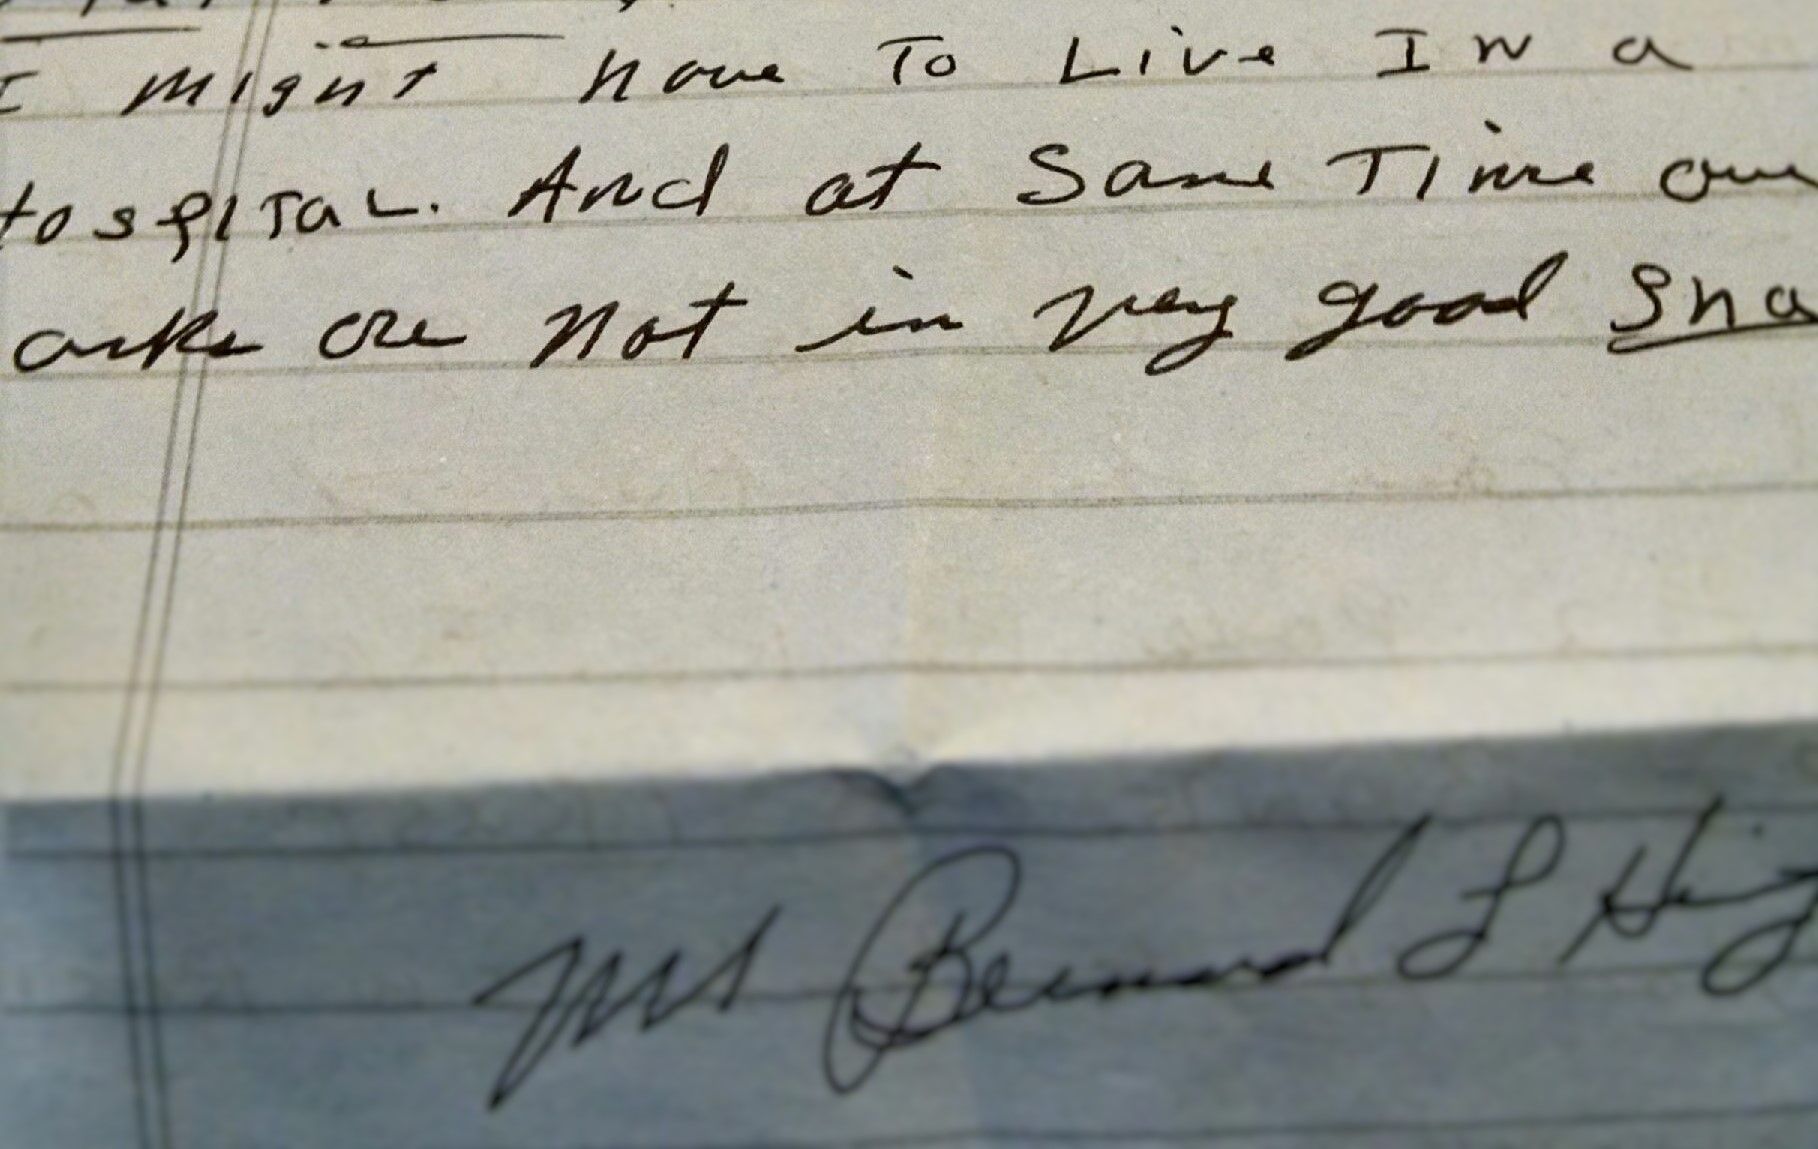 I might have To Live In a
Hospital. And at Same Time our
are not in very good Sha
Mr Bernard L Hig